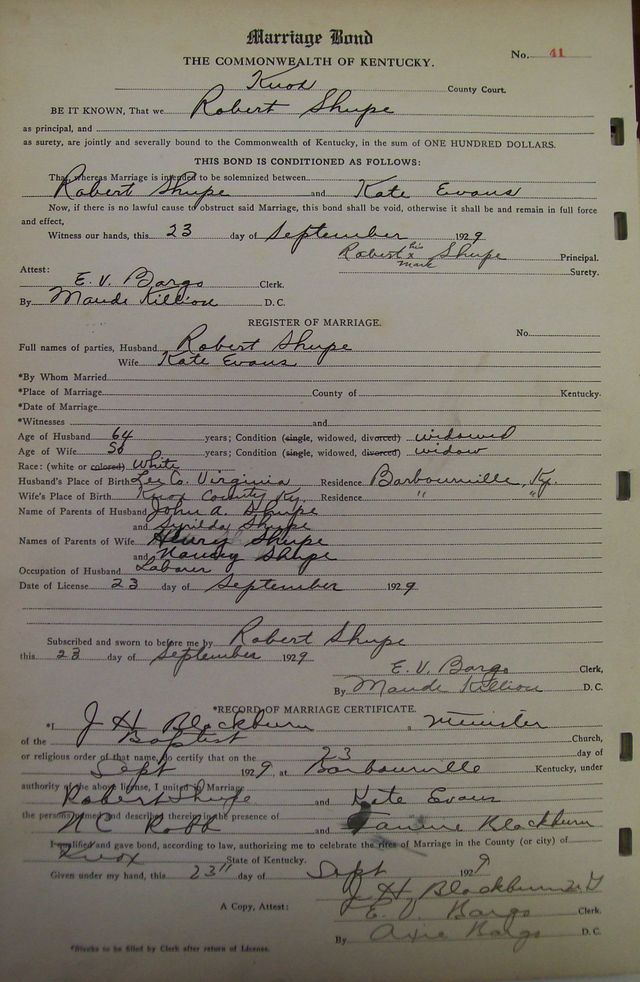 Marriage Bond
No. 41
THE COMMONWEALTH OF KENTUCKY.
Knox County Court.
BE IT KNOWN, That we Robert Shupe
as principal, and
as surety, are jointly and severally bound to the Commonwealth of Kentucky, in the sum of ONE HUNDRED DOLLARS.
THIS BOND IS CONDITIONED AS FOLLOWS:
That whereas Marriage is intended to be solemnized between
Robert Shupe and Kate Evans
Now, if there is no lawful cause to obstruct said Marriage, this bond shall be void, otherwise it shall be and remain in full force
and effect,
Witness our hands, this 23 day of September 1929
Robert his x mark Shupe Principal.
Surety.
Attest:
E. V. Bargo Clerk.
By Maude Killion D. C.
REGISTER OF MARRIAGE.
No.
Full names of parties, Husband Robert Shupe
Wife Kate Evans
*By Whom Married
*Place of Marriage County of Kentucky.
*Date of Marriage
*Witnesses and
Age of Husband 64 years; Condition (single, widowed, divorced) widowed
Age of Wife 50 years; Condition (single, widowed, divorced) widow
Race: (white or colored) White
Husband's Place of Birth Lee Co. Virginia Residence Barbourville, Ky.
Wife's Place of Birth Knox County Ky. Residence " "
Name of Parents of Husband John A. Shupe
and Syrilda Shupe
Names of Parents of Wife Henry Shupe
and Nancy Shupe
Occupation of Husband Laborer
Date of License 23 day of September 1929
Subscribed and sworn to before me by Robert Shupe
this 23 day of September 1929
E. V. Bargo Clerk,
By Maude Killion D. C.
*RECORD OF MARRIAGE CERTIFICATE.
*I J H Blackburn, a Minister
of the Baptist Church,
or religious order of that name, do certify that on the 23 day of
Sept 1929, at Barbourville Kentucky, under
authority of the above license, I united in Marriage
Robert Shupe and Kate Evans
the persons named and described therein in the presence of
N C Robb and Fannie Blackburn
I qualified and gave bond, according to law, authorizing me to celebrate the rites of Marriage in the County (or city) of
Knox State of Kentucky.
Given under my hand, this 23" day of Sept 1929
J. H. Blackburn M. G
A Copy, Attest: E. V. Bargo Clerk.
By Axie Bargo D. C.
*Blanks to be filled by Clerk after return of License.